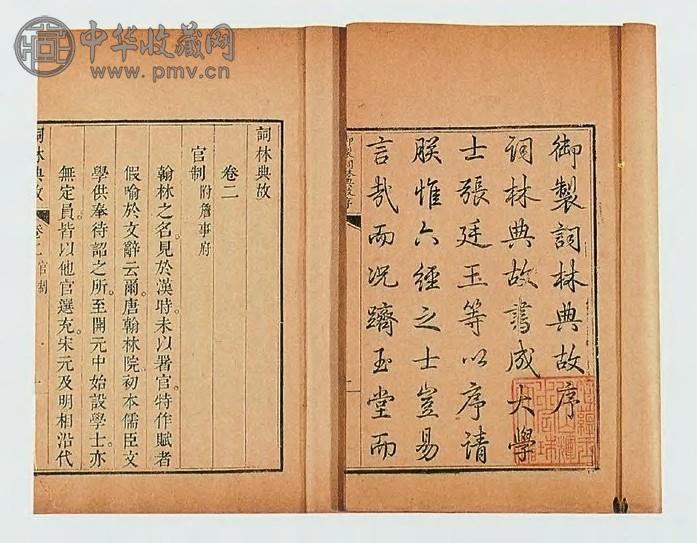 中华收藏网
www.pmv.cn
御製詞林典故序
詞林典故書成大學
士張廷玉等以序請
朕惟六經之士豈易
言哉而況躋玉堂而
詞林典故
卷二
官制 附詹事府
翰林之名見於漢時未以署官特作賦者
假喻於文辭云爾唐翰林院初本儒臣文
學供奉待詔之所至開元中始設學士亦
無定員皆以他官選充宋元及明相沿代
詞林典故 卷二 官制